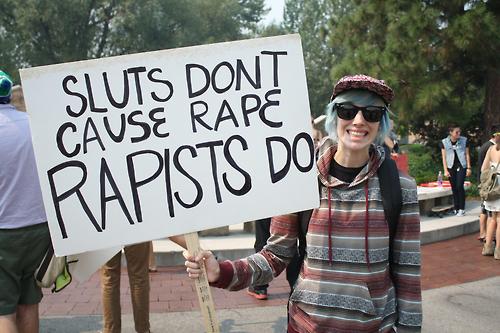 SLUTS DONT
CAUSE RAPE
RAPISTS DO